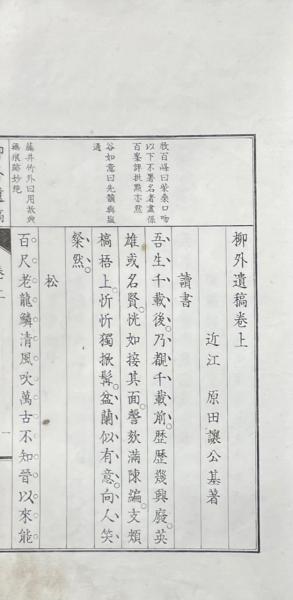 柳外遺稿卷上
近江　原田讓公基著
讀書
吾生千載後。乃覩千載前。歷歷幾興廢。英
雄或名賢。恍如接其面。謦欬滿陳編。支頰
槁梧上。忻忻獨掀髯。盆蘭似有意。向人笑
粲然。
松
百尺老龍鱗。清風吹萬古。不知晉以來。能
牧百峰曰柴桑口吻
以下不署名者盡係
百峯評批點亦然
谷如意曰先韻與鹽
通
藤井竹外曰用故典
無痕跡妙絶
卷上
一